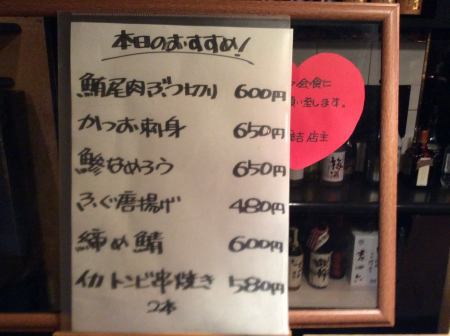 本日のおすすめ!
鮪尾肉ぶつ切り 600円
かつお刺身 650円
鯵なめろう 650円
ふぐ唐揚げ 480円
締め鯖 600円
イカトンビ串焼き 580円
2本
会食に
致します。
店主